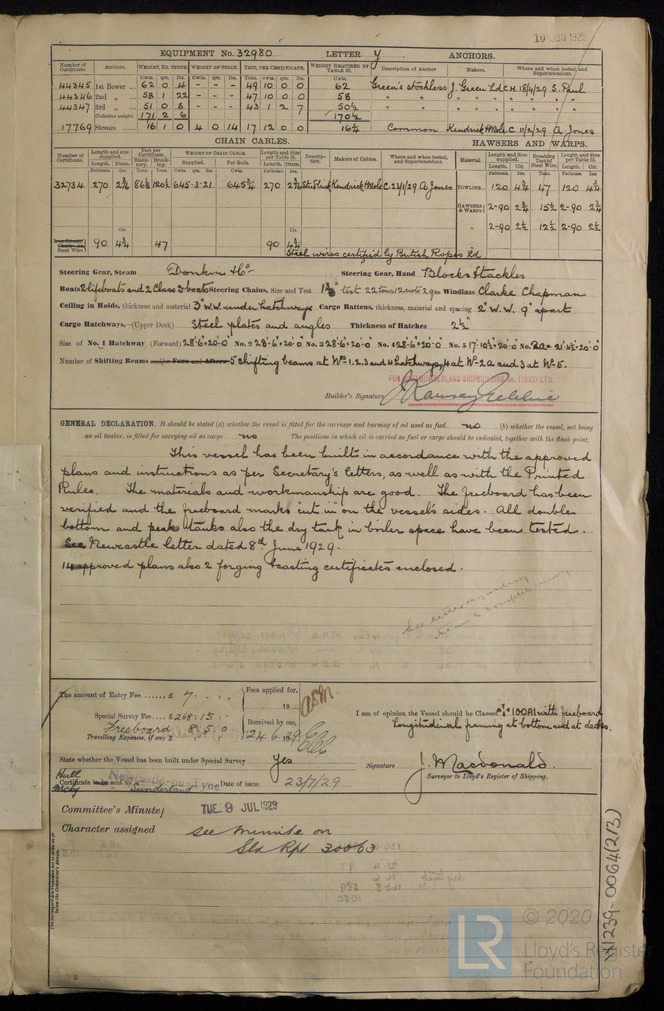 10 JUN 1929
EQUIPMENT No. 32980 LETTER y ANCHORS.
Number of Certificate. Anchors. WEIGHT, EX. STOCK. WEIGHT OF STOCK. TEST, PER CERTIFICATE. WEIGHT REQUIRED BY TABLE 53. Description of Anchor Makers. Where and when tested, and Superintendent.
Cwts. qrs. lbs. Cwts. qrs. lbs. Tons. cwts. qrs. lbs. Cwts.
44345 1st Bower 62 0 4 - - - 49 10 0 0 62 Green's Stockless J. Green Ld C.H. 18/4/29 S. Paul
44346 2nd " 58 1 22 - - - 47 10 0 0 58 " " " " " "
44347 3rd " 51 0 8 - - - 43 1 2 7 50½ " " " " " "
Collective weight. 171 2 6 170½
17769 Stream 16 1 0 4 0 14 17 12 0 0 16¼ Common Kendrick & Mole C. 11/2/29 A Jones
CHAIN CABLES. HAWSERS AND WARPS.
Number of Certificate. Length and size supplied. Test per Certificate. WEIGHT OF CHAIN CABLE. Length and Size per Table 53. Description. Makers of Cables. Where and when tested, and Superintendent. Material. Length and Size supplied. Breaking Test of Steel Wire. Length and Size per Table 53.
Length. Diam. Supplied. Per Rule. Length. Diam. Length. Cir. Length. Cir.
32734 270 86½ 120½ 645-3-21 645¾ 270 Stud Link Kendrick & Mole C. 23/1/29 A Jones TOWLINE 120 4¾ 47 120 4¾
HAWSERS & WARPS 2-90 2¾ 15½ 2-90 2¾
" 2-90 2½ 12½ 2-90 2½
Steel Wire 90 4¾ 47 90 4¾
Steel wires certified by British Ropes Ld
Steering Gear, Steam Donkin & Co Steering Gear, Hand Blocks & tackles
Boats 2 lifeboats and 2 Class 3 boats Steering Chains, Size and Test 1⅜" test 22 tons 12 cwts 2 qrs Windlass Clarke Chapman
Ceiling in Holds, thickness and material 3" W.W. under hatchways Cargo Battens, thickness, material and spacing 2" W.W. 9" apart
Cargo Hatchways.—(Upper Deck) Steel plates and angles Thickness of Hatches 2½"
Size of No. 1 Hatchway (Forward) 28'6" × 20'0" No. 2 28'6" × 20'0" No. 3 28'6" × 20'0" No. 4 28'6" × 20'0" No. 5 17'10½" × 20'0" No. 2a = 21'4½" × 20'0"
Number of Shifting Beams and/or Fore and Afters 5 shifting beams at Nos 1.2.3 and 4 hatchways, 4 at No 2a and 3 at No 5.
FOR NORTHUMBERLAND SHIPBUILDING Co. (1927) LTD.
Builder's Signature
GENERAL DECLARATION. It should be stated (a) whether the vessel is fitted for the carriage and burning of oil used as fuel no (b) whether the vessel, not being
an oil tanker, is fitted for carrying oil as cargo no The positions in which oil is carried as fuel or cargo should be indicated, together with the flash point.
This vessel has been built in accordance with the approved
plans and instructions as per Secretary's letters, as well as with the Printed
Rules. The materials and workmanship are good. The freeboard has been
verified and the freeboard marks cut in on the vessel's sides. All double
bottom and peak tanks also the dry tank in boiler space have been tested.
See Newcastle letter dated 8th June 1929.
14 approved plans also 2 forging & casting certificates enclosed.
The amount of Entry Fee ...... £ 7 : : Fees applied for,
19
Special Survey Fee .... £ 268 : 15 : Received by me,
Freeboard 8 5 0 24.6.29
Travelling Expenses, if any £
I am of opinion the Vessel should be Classed ✠ 100A1 with freeboard
Longitudinal framing at bottom and at decks.
State whether the Vessel has been built under Special Survey Yes Signature J. Macdonald.
Surveyor to Lloyd's Register of Shipping.
Hull
Mchy
Certificate to be sent to Newcastle-on-Tyne Sunderland Date of issue 23/7/29
Committee's Minute TUE. 9 JUL 1929
Character assigned see minute on
Sld Rpt 30063
W1239-0064(2/3)
LR
© 2020
Lloyd's Register
Foundation